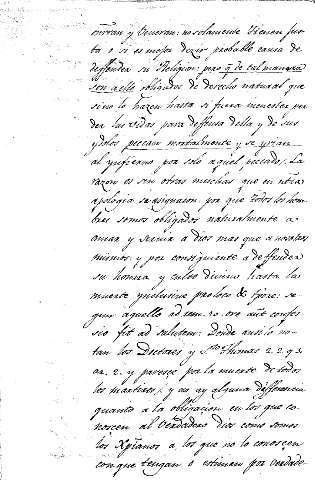 onrran y Veneran: no solamente tienen jus-
ta o si es mejor dezir probable causa de
deffender su Religion: pero q de tal manera
son a ello obligados de derecho natural que
sino lo hazen hasta si fuere menester per
der las vidas para deffensa della y de sus
ydolos peccan mortalmente y se yrian
al ynfierno por solo aquel peccado. La
razon es sin otras muchas que en nra
apologia se asignaron: por que todos los hom
bres somos obligados naturalmente a
amar y servir a dios mas que a nosotros
mismos y por consiguiente a deffender
su honrra y culto divino hasta la
muerte ynclusive pro loco & tpore: se
gun aquello ad rom. 10. ore aut confes
sio fit ad salutem. Donde ansi lo no-
tan los Doctores y Sto Thomas 2. 2. q 3.
ar. 2. y parece por la muerte de todos
los martires, y no ay alguna differencia
quanto a la obligacion en los que co-
noscen al Verdadero dios como somos
los Xpianos a los que no lo conoscen
con que tengan o estimen por verdade-